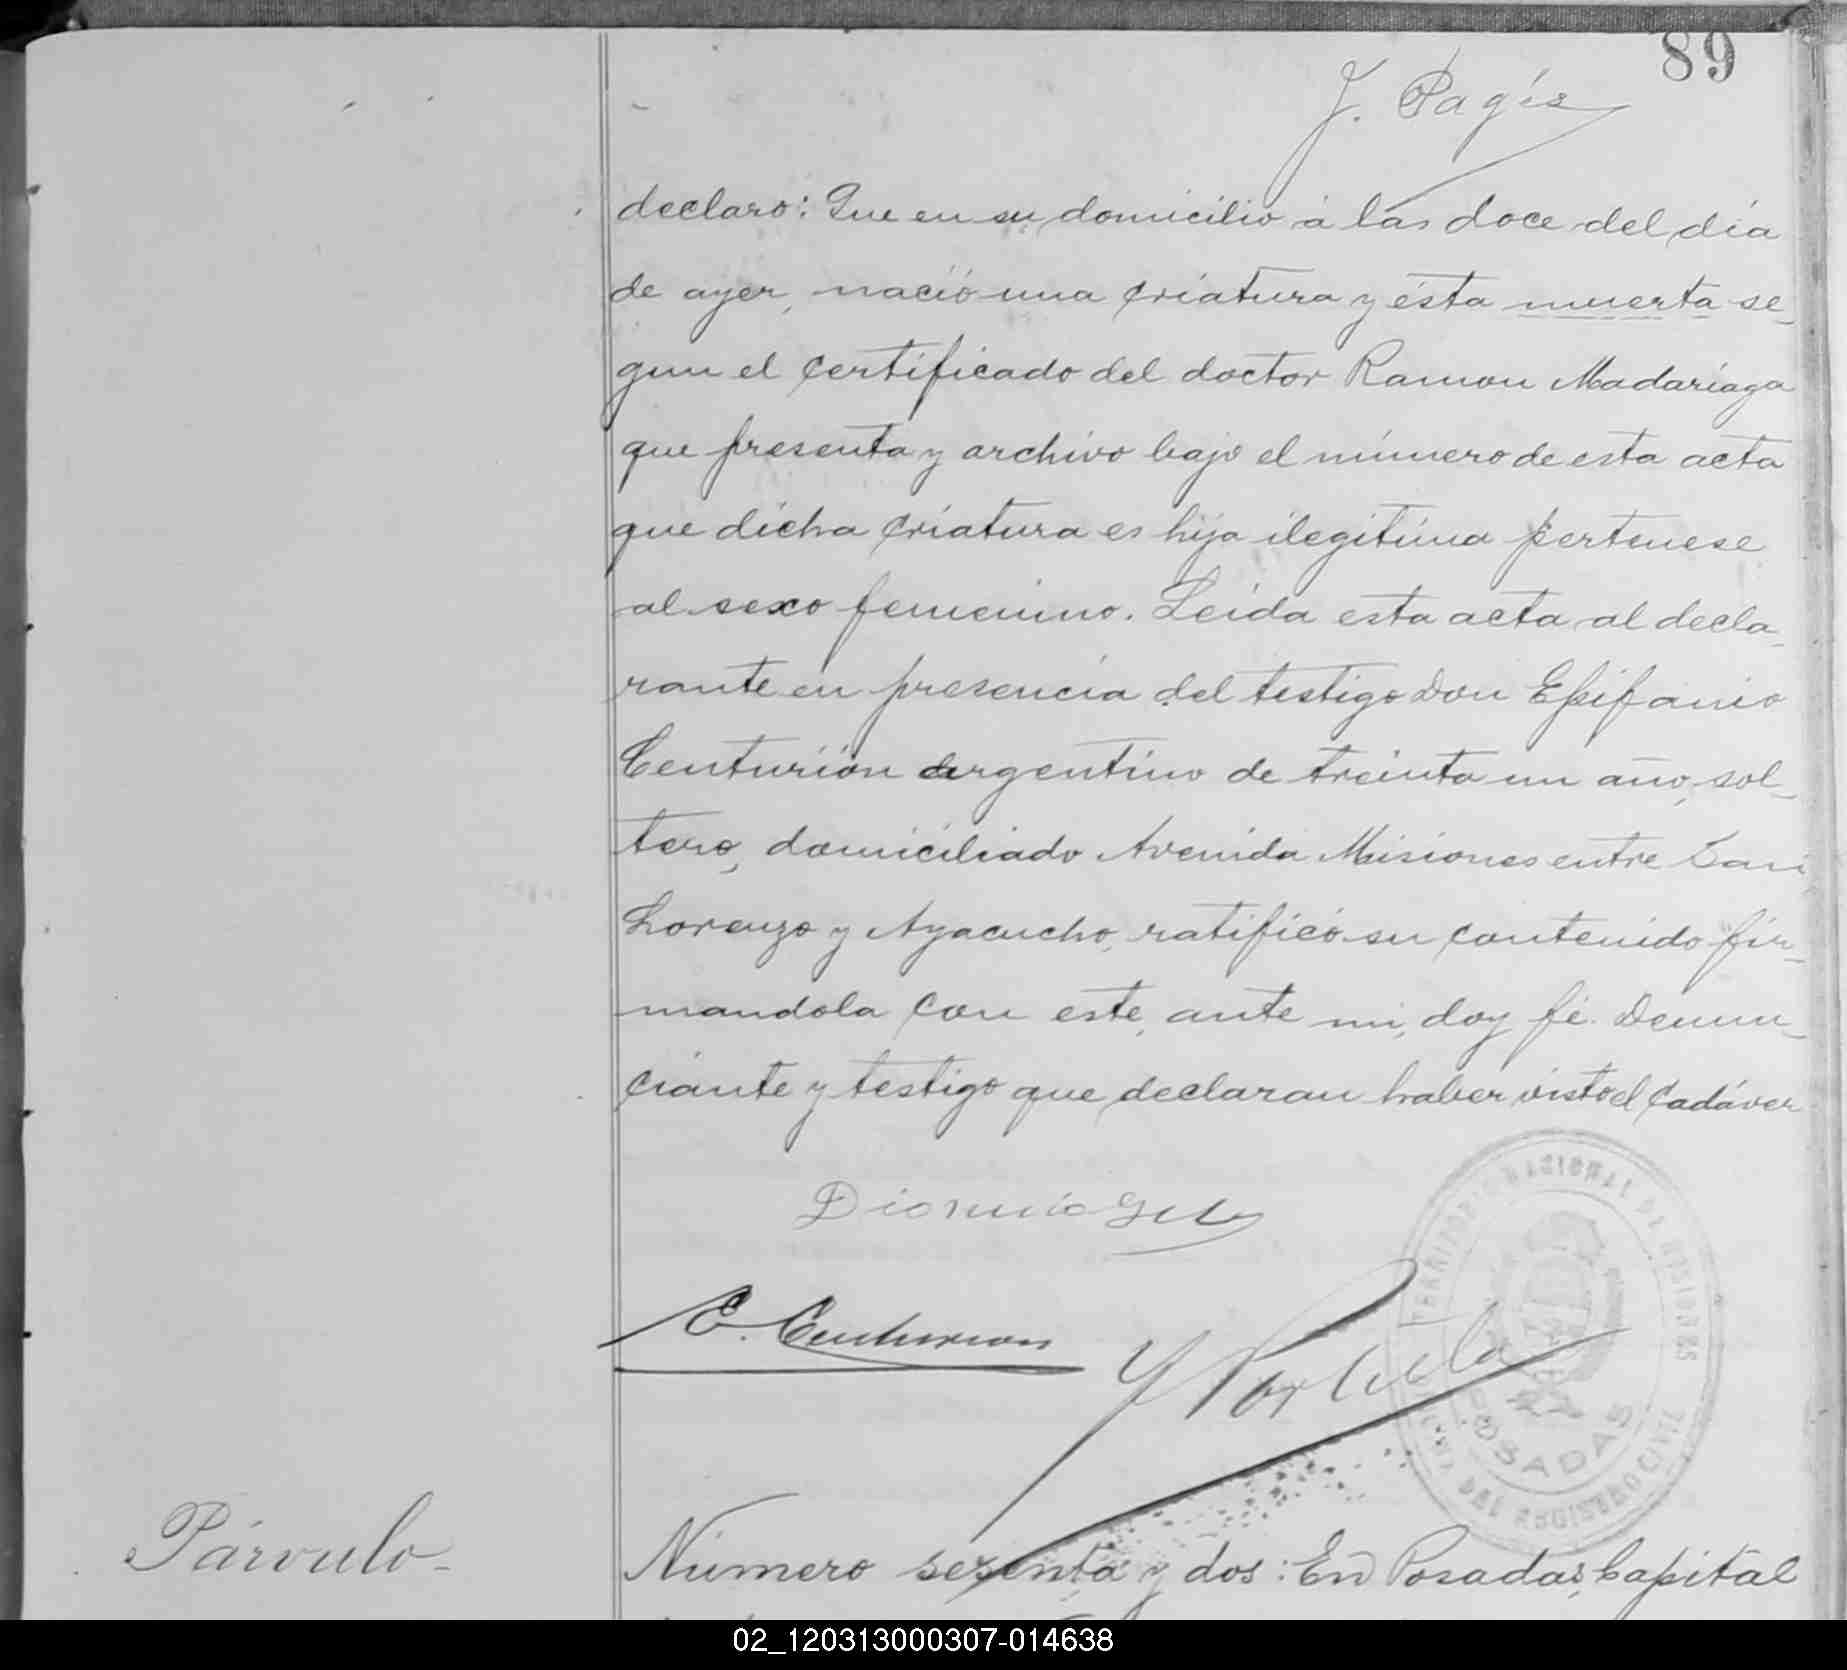 89
J. Pagés
declaro: Que en su domicilio á las doce del día
de ayer, nació una criatura y ésta muerta se_
gun el certificado del doctor Ramon Madariaga
que presenta y archivo bajo el número de esta acta
que dicha criatura es hija ilegitima pertenese
al sexo femenino. Leida esta acta al decla_
rante en presencia del testigo Don Epifanio
Centurión argentino de treinta un año, sol_
tero, domiciliado Avenida Misiones entre San
Lorenzo y Ayacucho, ratificó su contenido fir_
mandola con este, ante mi, doy fé. Denun_
ciante y testigo que declaran haber visto el cadáver
E. Centurion
TERRITORIO NACIONAL DE MISIONES
POSADAS
DEL REGISTRO CIVIL
Párvulo-
Número sesenta y dos: En Posadas, Capital
02_120313000307-014638